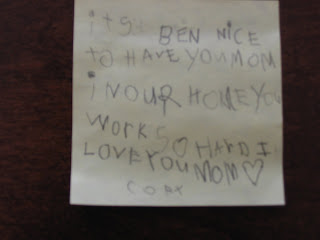 its BEN NICE
to HAVE YOU MOM
iN OUR HOME YOU
WORK SO HARD I
LOVE YOU MOM♡
CORY